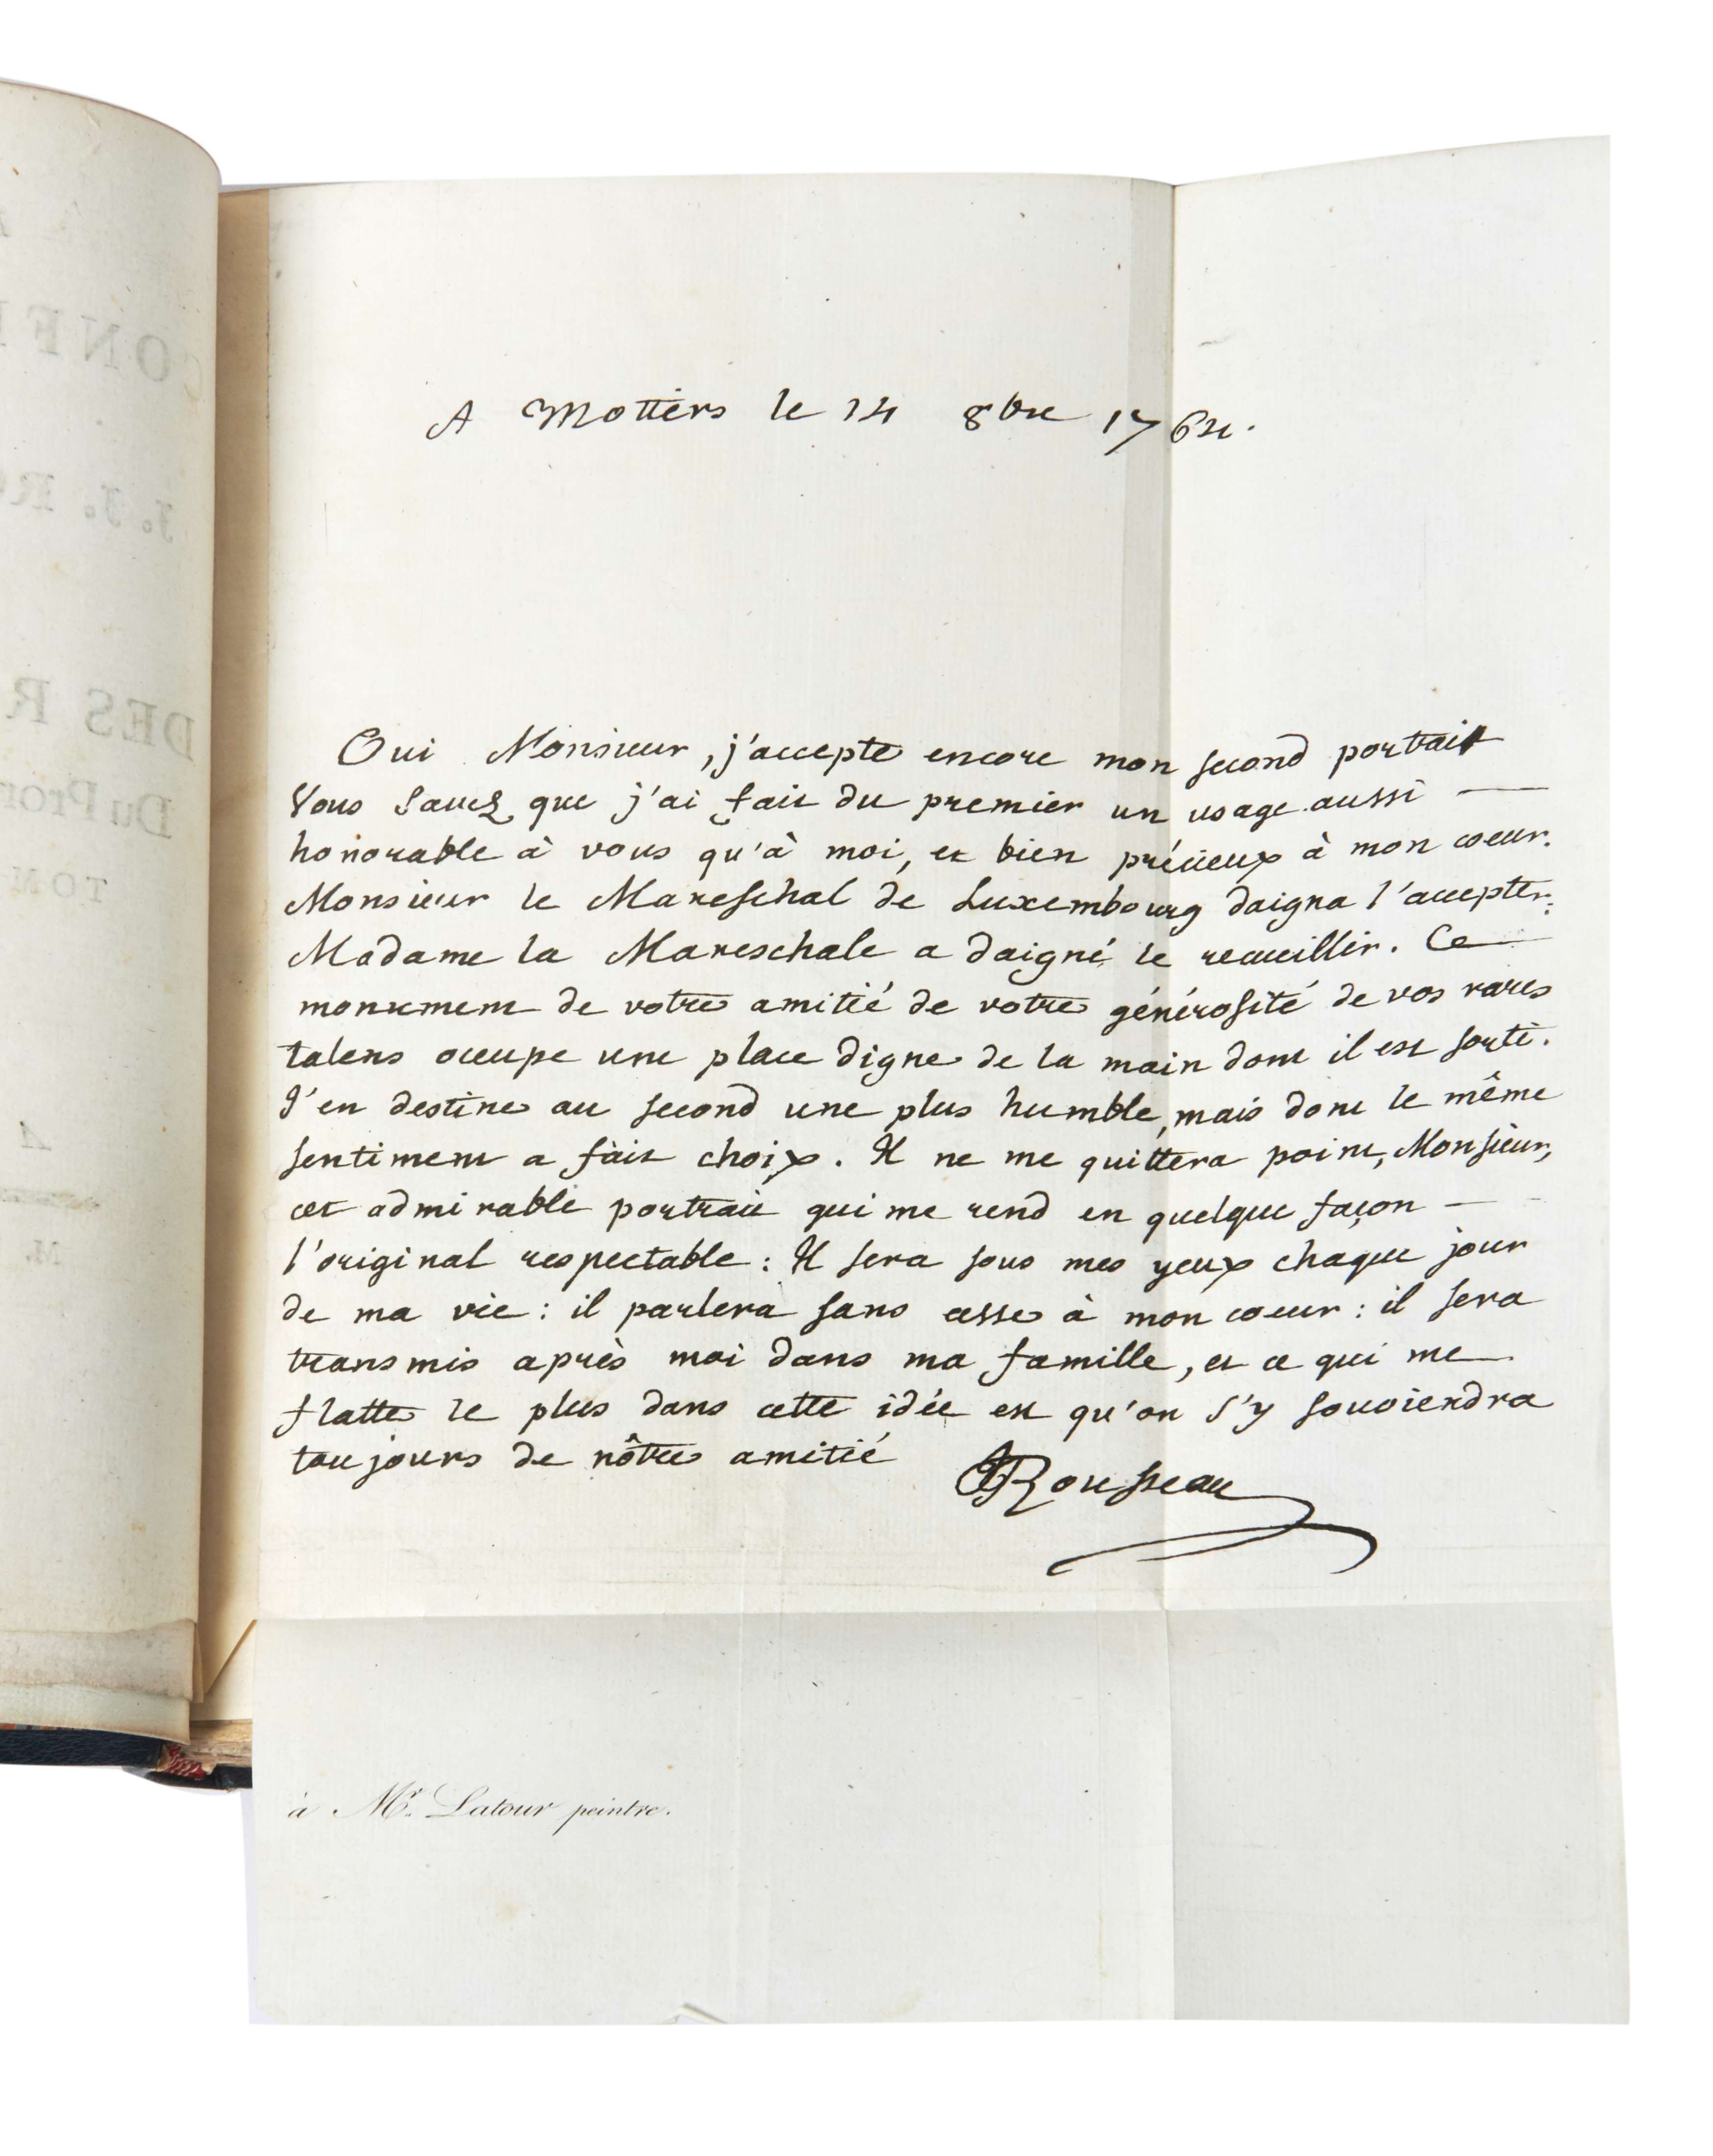 A Mottiers le 14 8bre 1764.
Oui Monsieur, j'accepte encore mon second portrait
Vous savez que j'ai fait du premier un usage aussi —
honorable à vous qu'à moi, et bien précieux à mon coeur.
Monsieur le Mareschal de Luxembourg daigna l'accepter:
Madame la Mareschale a daigné le recueillir. Ce —
monument de votre amitié de votre générosité de vos rares
talens occupe une place digne de la main dont il est sorti.
J'en destine au second une plus humble, mais dont le même
sentiment a fait choix. Il ne me quittera point, Monsieur,
cet admirable portrait qui me rend en quelque façon —
l'original respectable : Il sera sous mes yeux chaque jour
de ma vie : il parlera sans cesse à mon coeur : il sera
transmis après moi dans ma famille, et ce qui me
flatte le plus dans cette idée est qu'on s'y souviendra
toujours de nôtre amitié
JJRousseau
à Mr. Latour peintre.
CONF
J. J. R
DES R
Du Pro
TON
A
M.